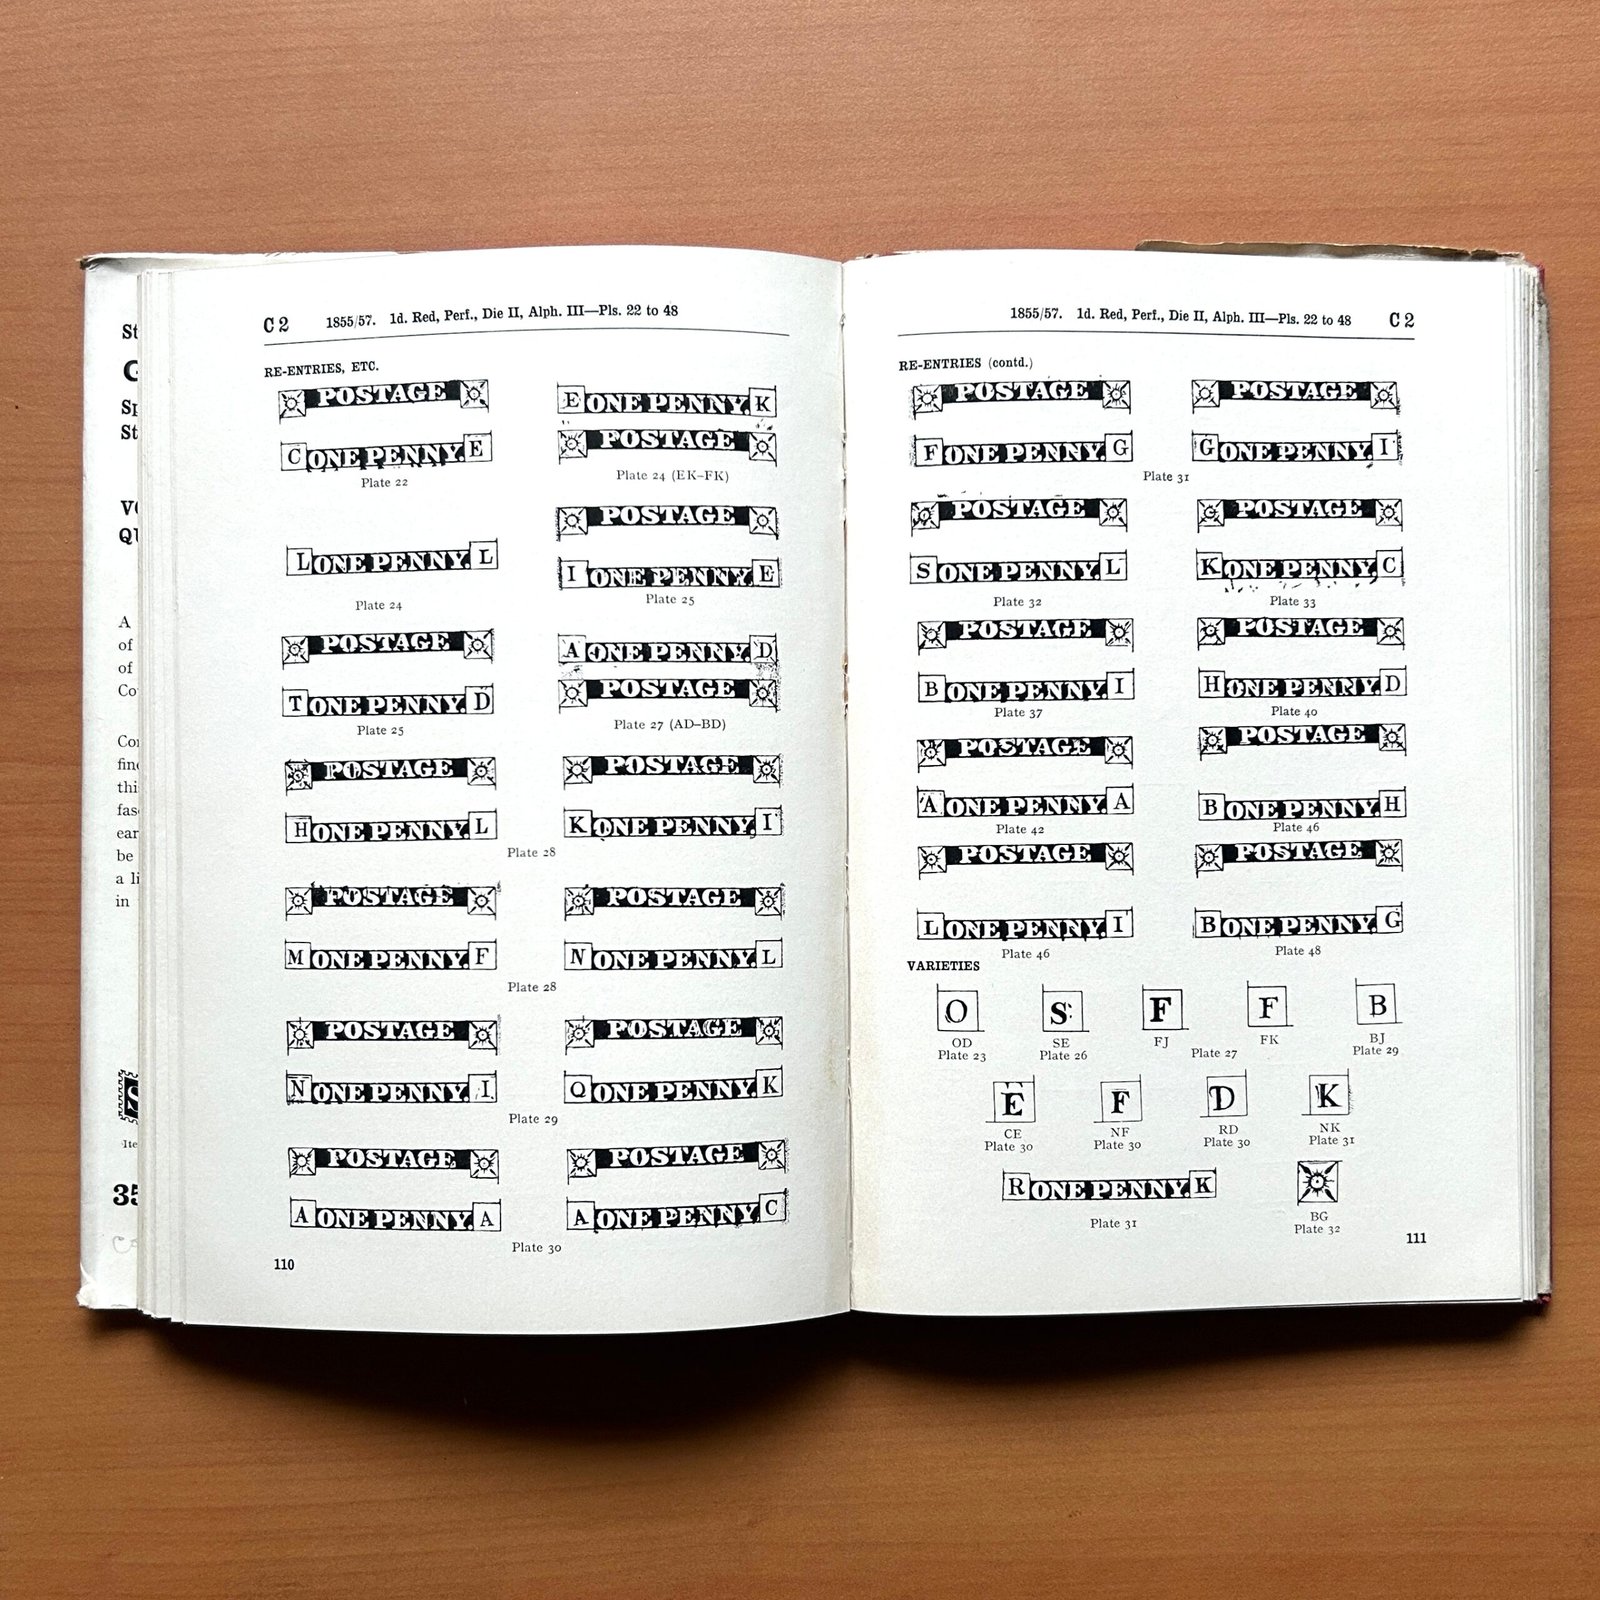 St
G
Sp
St
QU
A
of
of
Co
Con
find
this
fasc
ear
be
a li
in
Ite
35
C 2 1855/57. 1d. Red, Perf., Die II, Alph. III—Pls. 22 to 48
RE-ENTRIES, ETC.
POSTAGE
C ONE PENNY. E
Plate 22
E ONE PENNY. K
POSTAGE
Plate 24 (EK–FK)
L ONE PENNY. L
Plate 24
POSTAGE
I ONE PENNY. E
Plate 25
POSTAGE
T ONE PENNY. D
Plate 25
A ONE PENNY. D
POSTAGE
Plate 27 (AD–BD)
POSTAGE POSTAGE
H ONE PENNY. L K ONE PENNY. I
Plate 28
POSTAGE POSTAGE
M ONE PENNY. F N ONE PENNY. L
Plate 28
POSTAGE POSTAGE
N ONE PENNY. I Q ONE PENNY. K
Plate 29
POSTAGE POSTAGE
A ONE PENNY. A A ONE PENNY. C
Plate 30
110
1855/57. 1d. Red, Perf., Die II, Alph. III—Pls. 22 to 48 C 2
RE-ENTRIES (contd.)
POSTAGE POSTAGE
F ONE PENNY. G G ONE PENNY. I
Plate 31
POSTAGE POSTAGE
S ONE PENNY. L K ONE PENNY. C
Plate 32 Plate 33
POSTAGE POSTAGE
B ONE PENNY. I H ONE PENNY. D
Plate 37 Plate 40
POSTAGE POSTAGE
A ONE PENNY. A B ONE PENNY. H
Plate 42 Plate 46
POSTAGE POSTAGE
L ONE PENNY. I B ONE PENNY. G
Plate 46 Plate 48
VARIETIES
O S F F B
OD SE FJ FK BJ
Plate 23 Plate 26 Plate 27 Plate 29
E F D K
CE NF RD NK
Plate 30 Plate 30 Plate 30 Plate 31
R ONE PENNY. K
Plate 31
BG
Plate 32
111